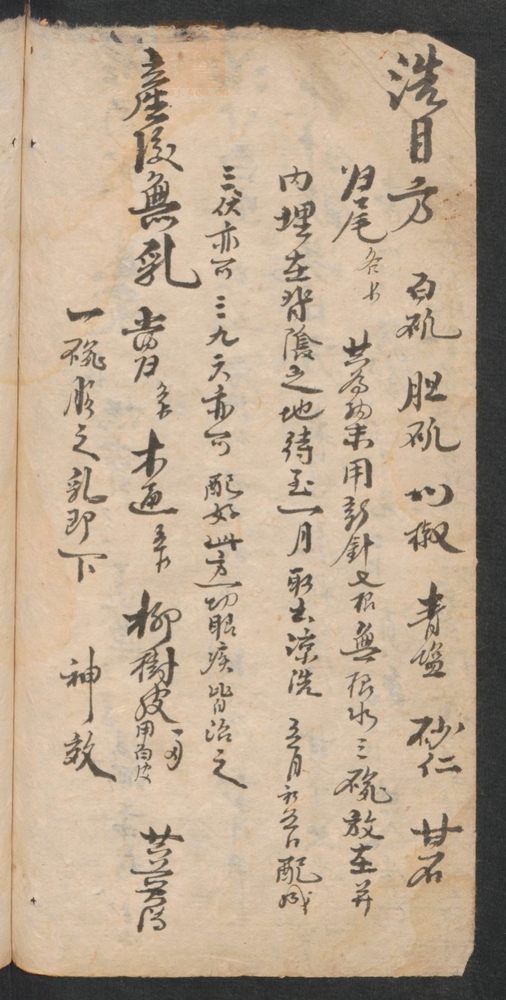 洗目方 白矾 胆矾 川椒 青盐 砂仁 甘石
归尾 各 共為细末用新針七根無根水三碗放在井
内埋在背陰之地待至一月取出凉洗 五月初五日配成
三伏亦可 三九天亦可 配好此方一切眼疾皆治之
產後無乳 當归 木通 柳樹皮 用白皮
一碗服之乳即下 神效